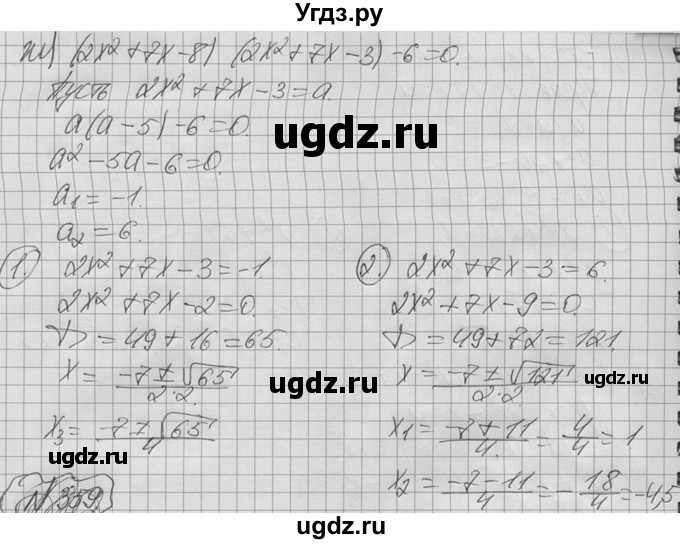 Угдз.ру
ж) (2x² + 7x - 8) (2x² + 7x - 3) - 6 = 0.
Пусть 2x² + 7x - 3 = a.
a(a - 5) - 6 = 0.
ugdz.ru
a² - 5a - 6 = 0.
a₁ = -1.
a₂ = 6.
1. 2x² + 7x - 3 = -1
2x² + 7x - 2 = 0.
D = 49 + 16 = 65.
x = (-7 ± √65)/(2·2)
x₃ = (-7 ± √65)/4
2. 2x² + 7x - 3 = 6.
2x² + 7x - 9 = 0.
D = 49 + 72 = 121.
x = (-7 ± √121)/(2·2)
x₁ = (-7 + 11)/4 = 4/4 = 1
x₂ = (-7 - 11)/4 = -18/4 = -4,5
ugdz.ru
ugdz.ru
ugdz.ru
ugdz.ru
ugdz.ru
N359.
ugdz.ru